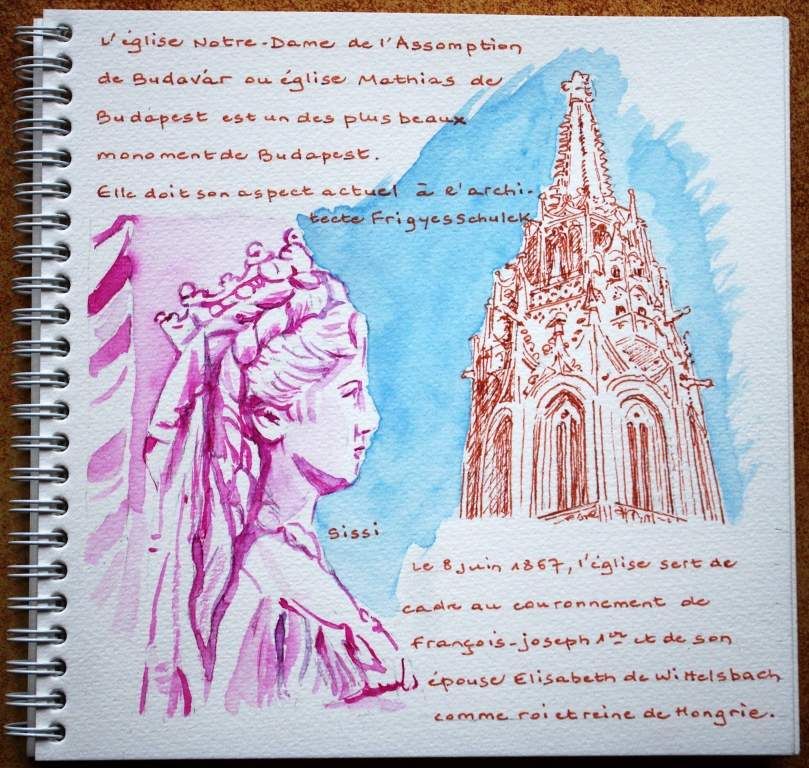 L'église Notre-Dame de l'Assomption
de Budavár ou église Mathias de
Budapest est un des plus beaux
monoment de Budapest.
Elle doit son aspect actuel à l'archi-
tecte Frigyes Schulek
Sissi
Le 8 juin 1867, l'église sert de
cadre au couronnement de
François-joseph 1er et de son
épouse Elisabeth de Wittelsbach
comme roi et reine de Hongrie.